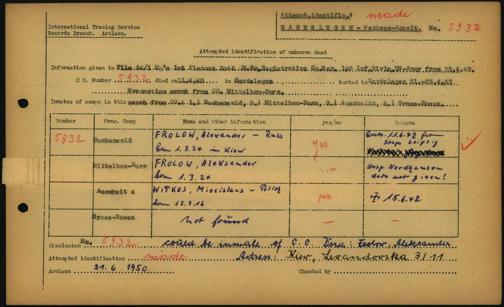 International Tracing Service
Records Branch. Arolsen.
Attempt.identific.: made
GARDELEGEN - Sachsen-Anhalt. No. 5932
Attempted identification of unknown dead
Information given in File 24/1 Hq's 1st Platoon 3048 Gr.Registration 22.4.45.
C.C. Number 5932 died on 13.4.45 in Gardelegen buried in Gardelegen 21.-25.4.45
Evacuating march from CC. Mittelbau-Dora.
Inmates of camps in this march from CC. 1.) Buchenwald, 2.) Mittelbau-Dora, 3.) Auschwitz, 4.) Gross-Rosen.
Number Conc. Camp Name and other information yes/no Remarks
5932 Buchenwald FROLOW, Alexander - Russ
born 1.3.24 in Kiew yes 11.6.42 from Leipzig
Mittelbau-Dora FROLOW, Aleksander
born 1.3.24 Hosp. Nordhausen
date not given!
Auschwitz WITKOS, Miecislaus -
born 12.3.16 no + 15.6.42
Gross-Rosen not found
No. 5932
Conclusion could be inmate of C.C. Dora: Frolow, Aleksander
Attempted identification made Adress: Kiew, 3/11
Arolsen 21.6.1950 Checked by